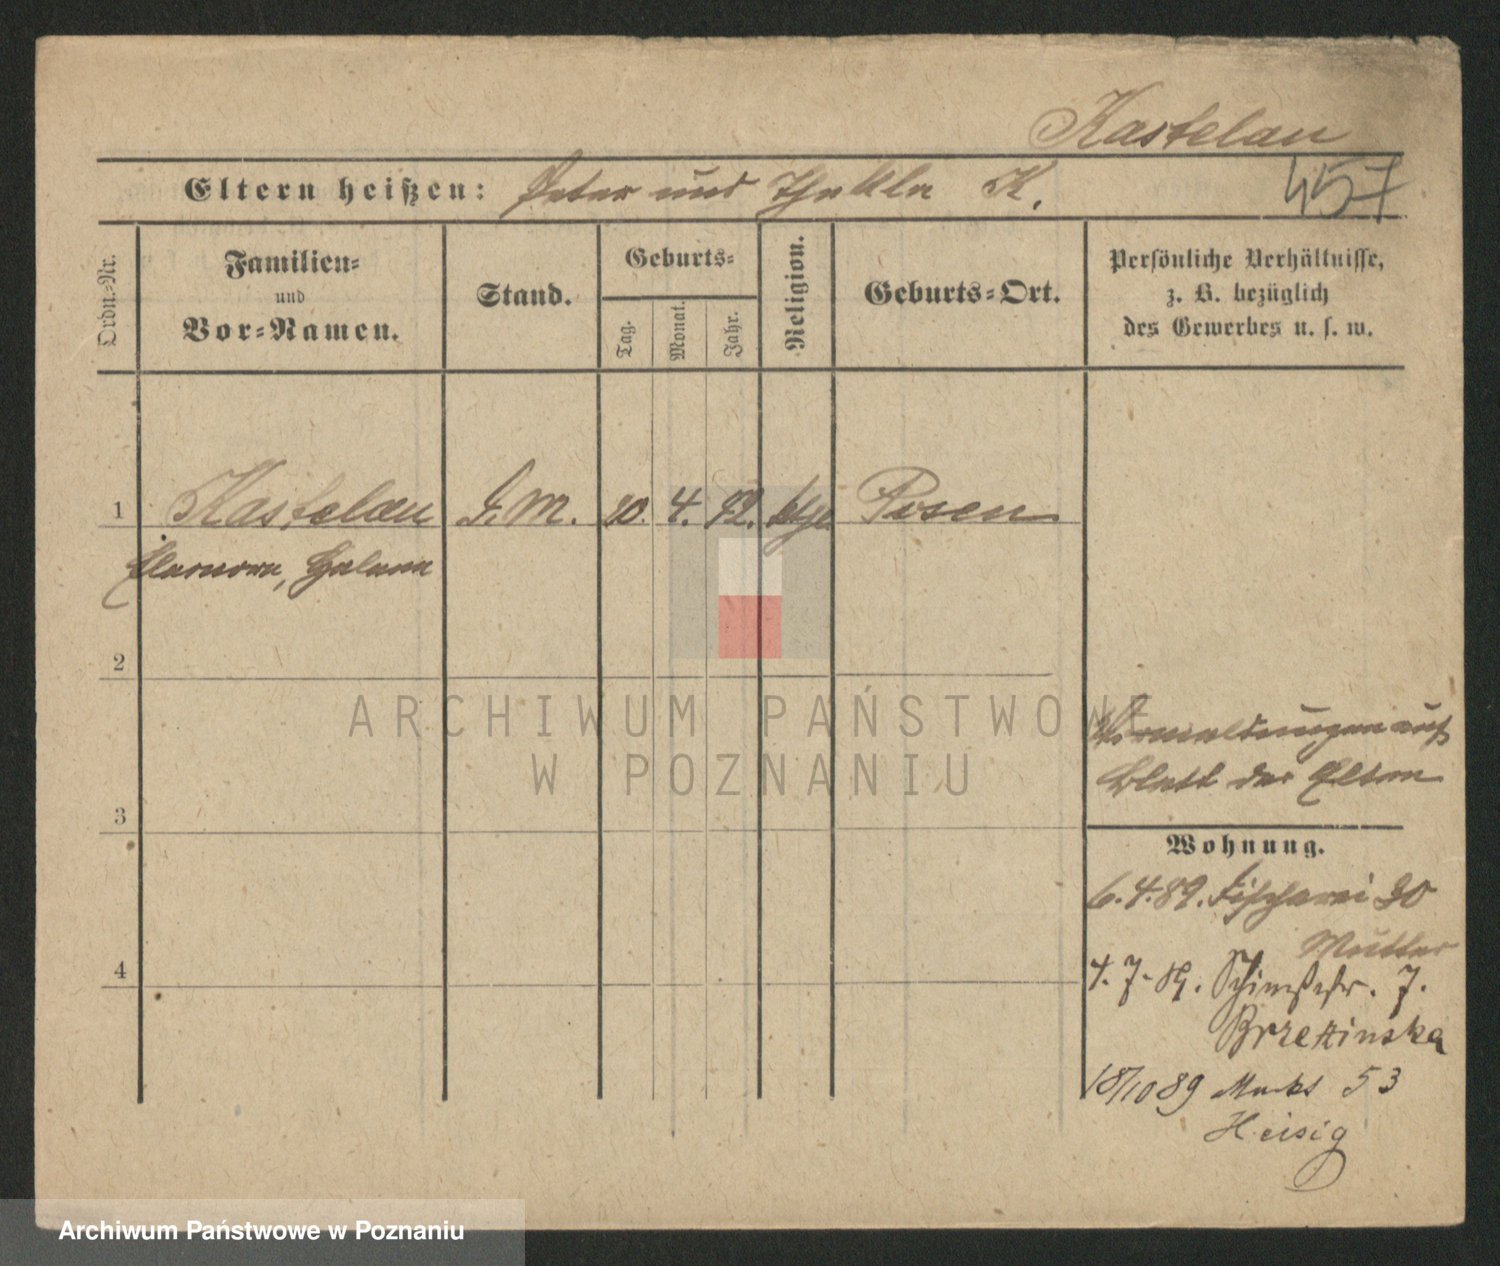 Kastelan
Eltern heißen: Peter und Thekla K.
457
Ordn.-Nr.
Familien-
und
Vor-Namen.
Stand.
Geburts-
Tag.
Monat.
Jahr.
Religion.
Geburts-Ort.
Persönliche Verhältnisse,
z. B. bezüglich
des Gewerbes u. s. w.
1 Kastelan D. M. 4. 72. Posen
Eleonore, Helena
2
3
4
ARCHIWUM PAŃSTWOWE
W POZNANIU
Vermeldungen auf
Blatt der Eltern
Wohnung.
6. 4. 89. Fischerei 30
Mutter
4. 7. 89. 7.
Brzezinska
18/10 89 Markt 53
Heisig
Archiwum Państwowe w Poznaniu